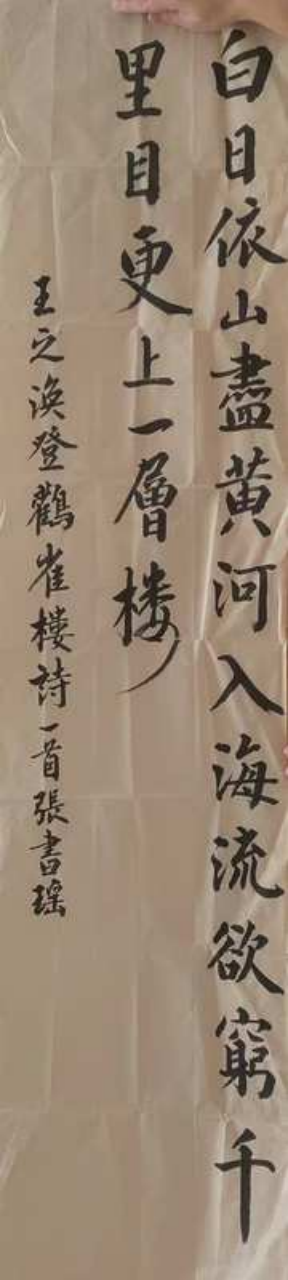 白日依山盡黄河入海流欲窮千
里目更上一層楼
王之涣登鸛雀樓詩一首張書瑶